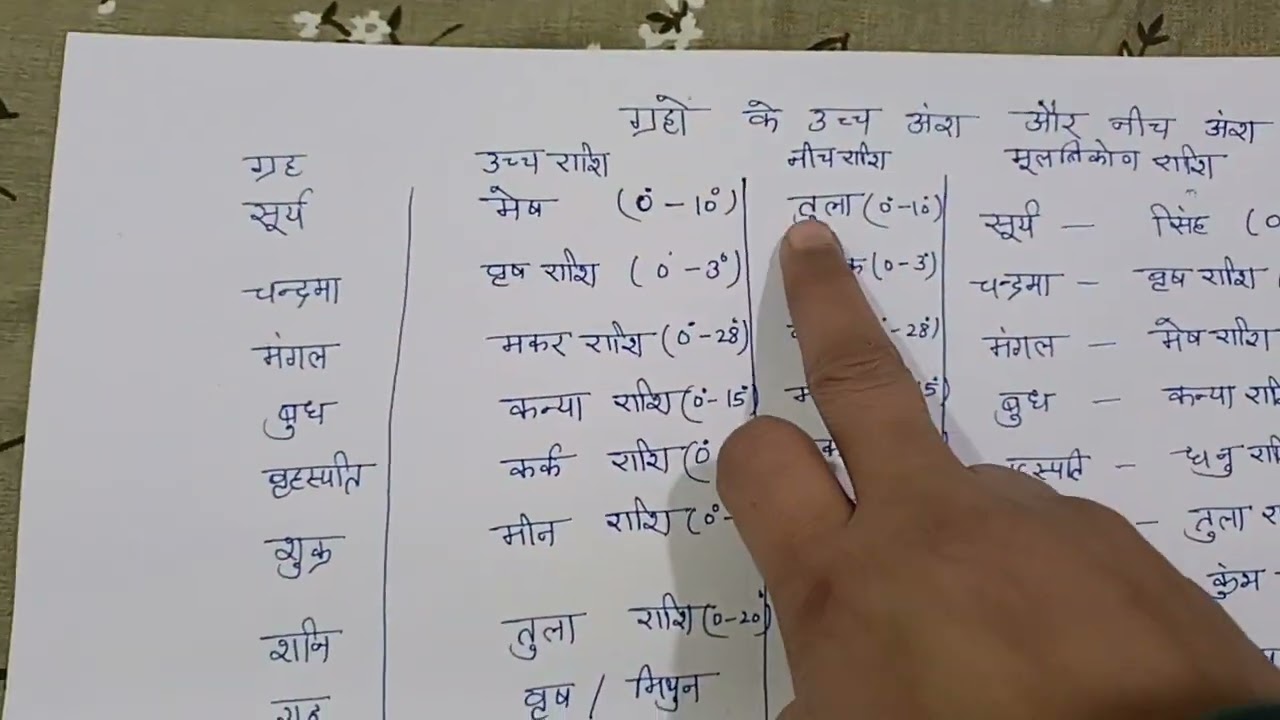 ग्रहों के उच्च अंश और नीच अंश
ग्रह उच्च राशि नीच राशि मूलत्रिकोण राशि
सूर्य मेष (0°-10°) तुला (0°-10°) सूर्य — सिंह (0
चन्द्रमा वृष राशि (0°-3°) (0-3°) चन्द्रमा — वृष राशि
मंगल मकर राशि (0°-28°) -28°) मंगल — मेष राशि
बुध कन्या राशि (0°-15°) बुध — कन्या
वृहस्पति कर्क राशि (0° — धनु
शुक्र मीन राशि (0°- — तुला
शनि तुला राशि (0-20°) कुंभ -
वृष / मिथुन